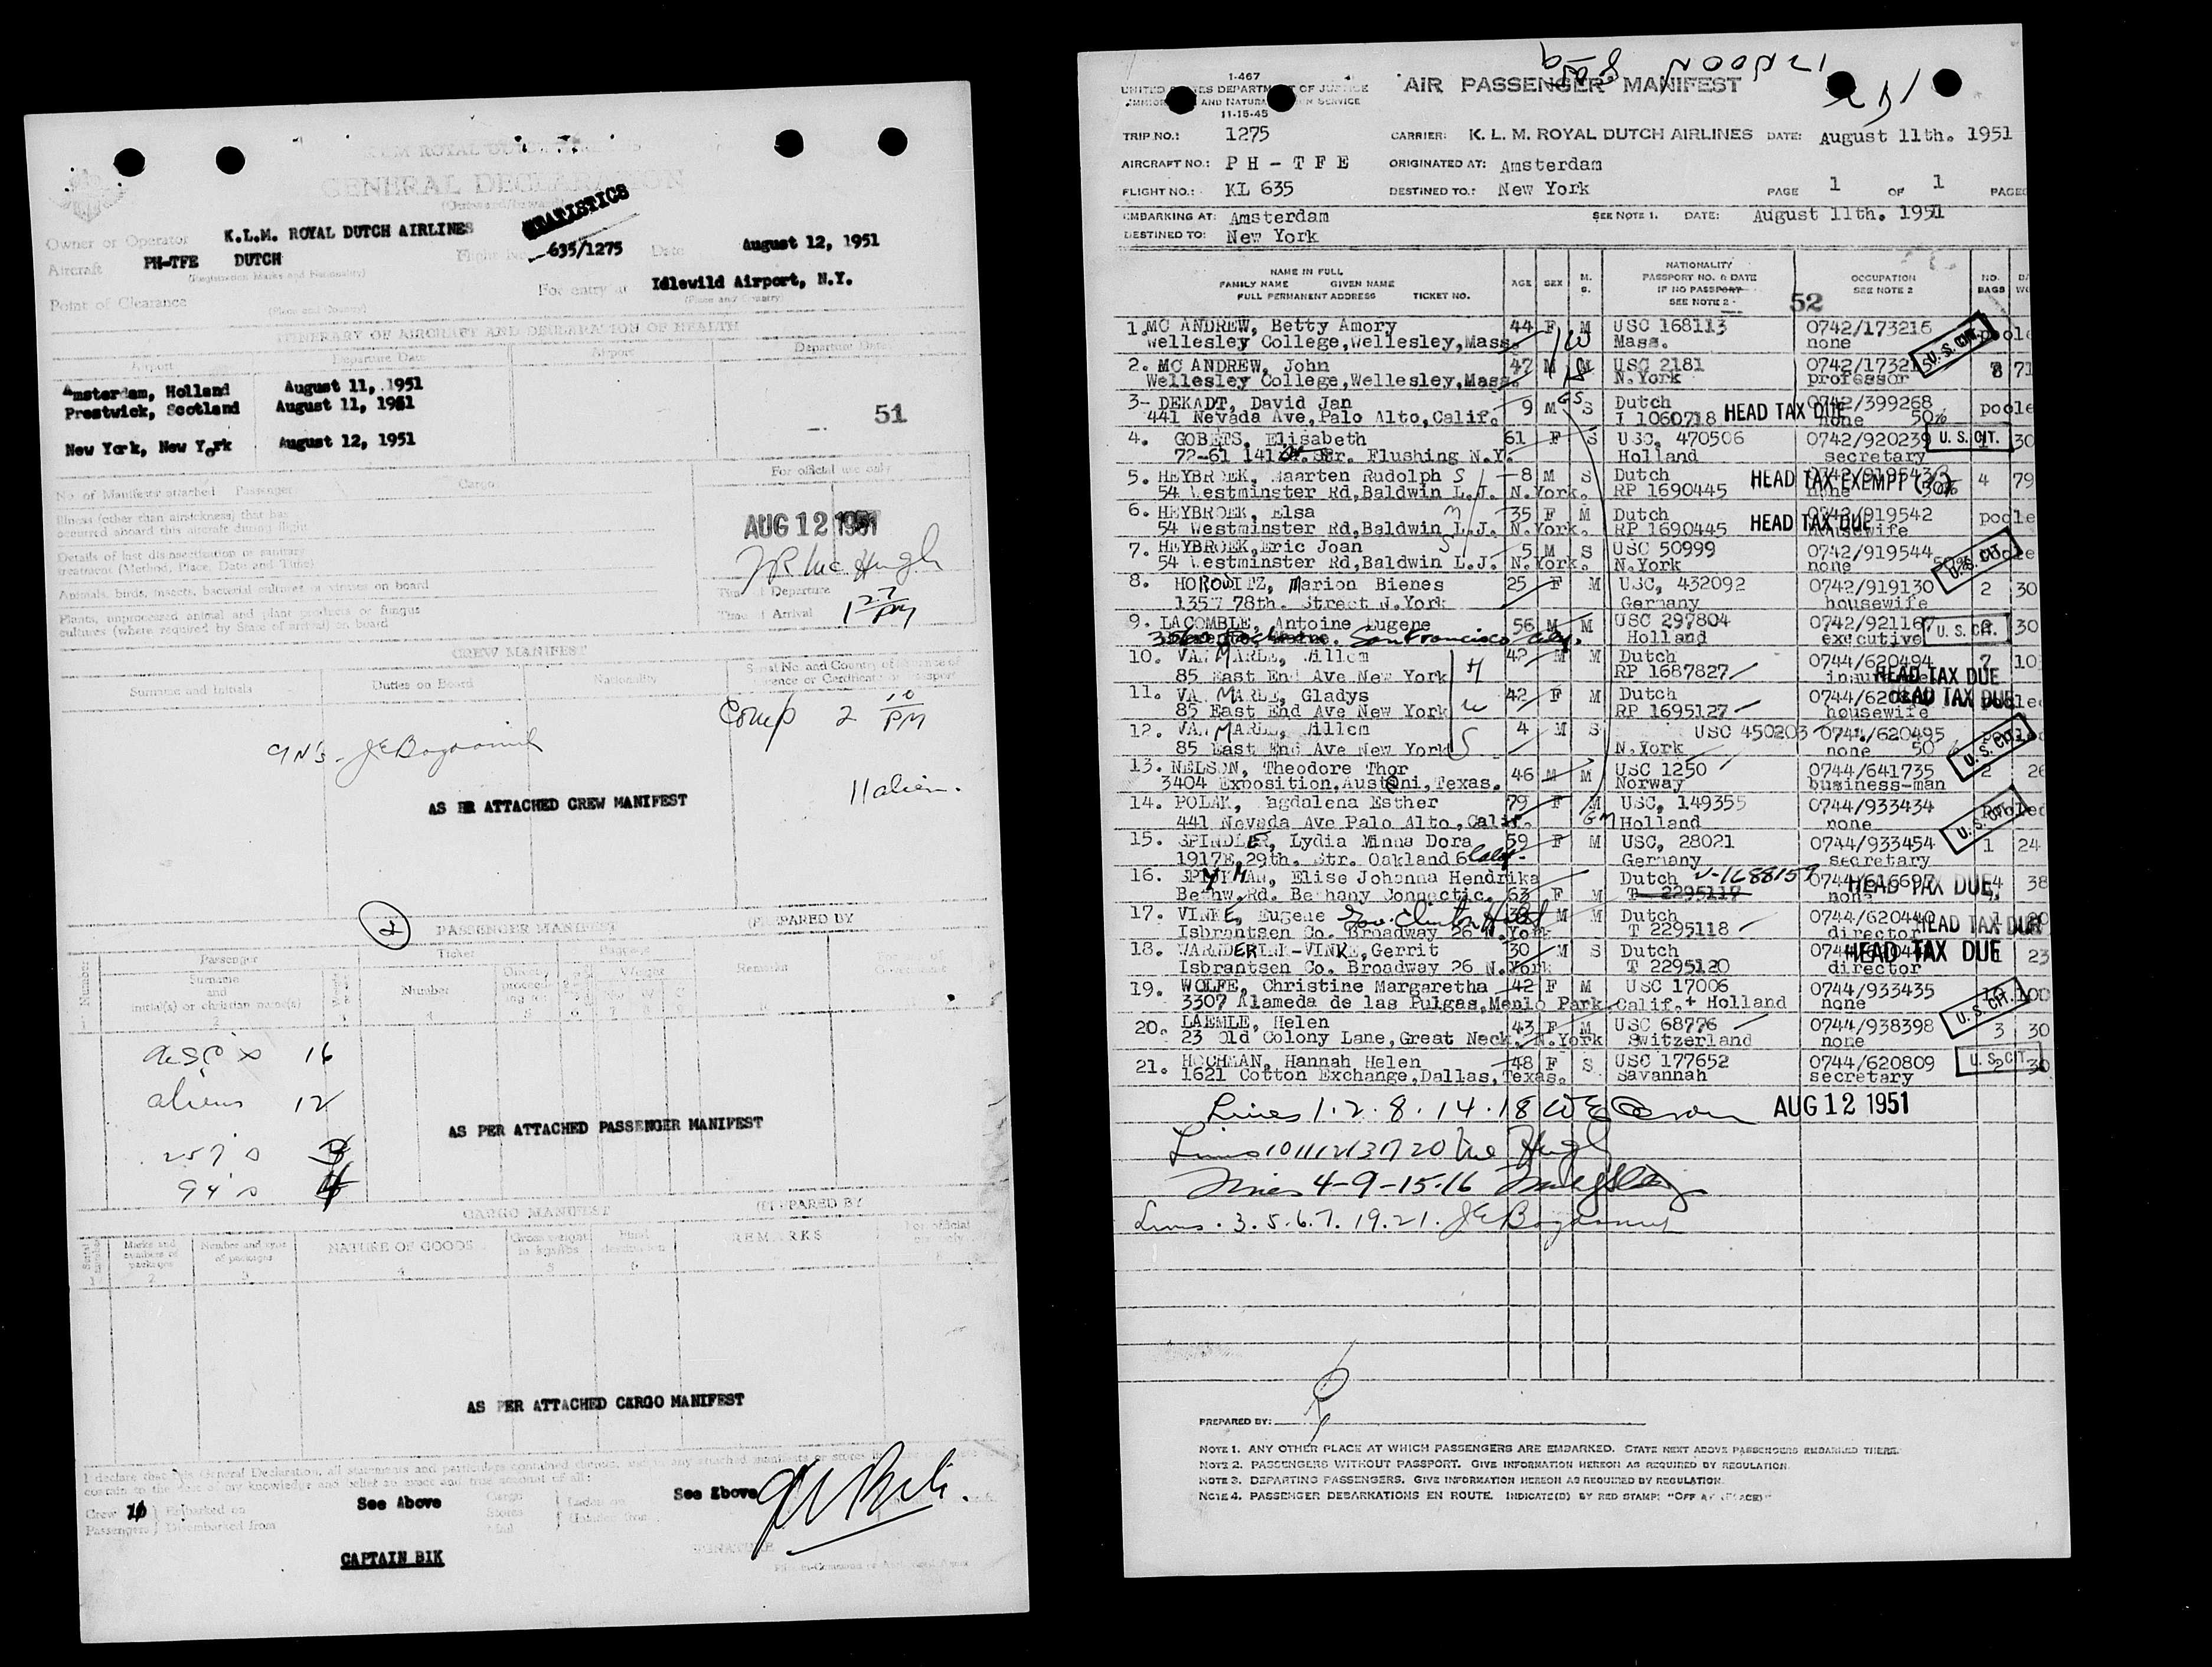 K.L.M. ROYAL DUTCH AIRLINES
GENERAL DECLARATION
(Outward/Inward)
STATISTICS
Owner or Operator K.L.M. ROYAL DUTCH AIRLINES
Aircraft PH-TFE DUTCH Flight No. 635/1275 Date August 12, 1951
(Registration Marks and Nationality)
Point of Clearance For entry at Idlewild Airport, N.Y.
(Place and Country) (Place and Country)
ITINERARY OF AIRCRAFT AND DECLARATION OF HEALTH
Airport Departure Date Airport Departure Date
Amsterdam, Holland August 11, 1951
Prestwick, Scotland August 11, 1951
51
New York, New York August 12, 1951
For official use only
No of Manifests attached Passenger Cargo
Illness (other than airsickness) that has
occurred aboard this aircraft during flight
AUG 12 1951
Details of last disinsectisation or sanitary
treatment (Method, Place, Date and Time)
J R Mc Hugh
Animals, birds, insects, bacterial cultures or viruses on board
Time of Departure
Plants, unprocessed animal and plant products or fungus
cultures (where required by State of arrival) on board
Time of Arrival 1 27 PM
CREW MANIFEST
Surname and Initials Duties on Board Nationality Serial No. and Country of Issuance of
Licence or Certificate or Passport
Comp 2 10 PM
11 alien.
AS PER ATTACHED CREW MANIFEST
2
PASSENGER MANIFEST (PREPARED BY
Number Passenger Ticket Baggage Remarks
Surname
and
initial(s) or christian name(s)
Number Weight
16
aliens 12
257's 3
94's 4
AS PER ATTACHED PASSENGER MANIFEST
CARGO MANIFEST (PREPARED BY
Marks and numbers of packages Number and type of packages NATURE OF GOODS Gross weight in kgs/lbs Final destination REMARKS For official use only
AS PER ATTACHED CARGO MANIFEST
I declare that this General Declaration, all statements and particulars contained therein, and in any attached manifests or stores
contain to the best of my knowledge and belief an exact and true account of all:
Crew 10 Embarked on See Above Cargo Laden on See Above
Passengers Disembarked from Stores Unladen from
Mail
SIGNATURE
CAPTAIN BIK
1-467
UNITED STATES DEPARTMENT OF JUSTICE
IMMIGRATION AND NATURALIZATION SERVICE
11-15-45
AIR PASSENGER MANIFEST
12 NOON
TRIP NO.: 1275 CARRIER: K. L. M. ROYAL DUTCH AIRLINES DATE: August 11th. 1951
AIRCRAFT NO.: P H - T F E ORIGINATED AT: Amsterdam
FLIGHT NO.: KL 635 DESTINED TO.: New York PAGE 1 OF 1 PAGES
EMBARKING AT: Amsterdam SEE NOTE 1. DATE: August 11th. 1951
DESTINED TO: New York
NAME IN FULL
FAMILY NAME GIVEN NAME
FULL PERMANENT ADDRESS TICKET NO.
AGE SEX M. S.
NATIONALITY
PASSPORT NO. & DATE
IF NO PASSPORT
SEE NOTE 2
52
OCCUPATION
SEE NOTE 2
NO. BAGS
1. MC ANDREW, Betty Amory 44 F M USC 168113 0742/173216 U.S. CIT. poole
Wellesley College, Wellesley, Mass. Mass. none
2. MC ANDREW, John 47 M M USC 2181 0742/173215 8 71
Wellesley College, Wellesley, Mass. N.York professor
3- DEKADT, David Jan 9 M S Dutch HEAD TAX DUE 0742/399268 poole
441 Nevada Ave, Palo Alto, Calif. I 1060718 none 50%
4. GOBETS, Elisabeth 61 F S USC, 470506 0742/920239 U.S. CIT. 30
72-61 141 Str. Flushing N.Y. Holland secretary
5. HEYBROEK, Maarten Rudolph 8 M S Dutch HEAD TAX EXEMPT 0742/919543 4 79
54 Westminster Rd, Baldwin L.J. N.York. RP 1690445 none
6. HEYBROEK, Elsa 35 F M Dutch HEAD TAX DUE 0742/919542 poole
54 Westminster Rd, Baldwin L.J. N.York. RP 1690445 housewife
7. HEYBROEK, Eric Joan 5 M S USC 50999 0742/919544 U.S. CIT. poole
54 Westminster Rd, Baldwin L.J. N.York. N.York none 50%
8. HOROWITZ, Marion Bienes 25 F M USC, 432092 0742/919130 2 30
135 78th. Street N.York Germany housewife
9. LACOMBLE, Antoine Eugene 56 M M USC 297804 0742/921167 U.S. CIT. 30
San Francisco Holland executive
10. VAN MARLE, Willem 42 M M Dutch 0744/620494 7 10
85 East End Ave New York H RP 1687827 HEAD TAX DUE
11. VAN MARLE, Gladys 42 F M Dutch HEAD TAX DUE
85 East End Ave New York W RP 1695127 housewife
12. VAN MARLE, Willem 4 M S USC 450203 0744/620495 U.S. CIT.
85 East End Ave New York S N.York none 50
13. NELSON, Theodore Thor 46 M M USC 1250 0744/641735 2 26
3404 Exposition, Austeni, Texas. Norway business-man
14. POLAK, Magdalena Esther 79 F M USC, 149355 0744/933434 U.S. CIT. pooled
441 Nevada Ave Palo Alto, Calif. GM Holland none
15. SPINDLER, Lydia Minna Dora 59 F M USC, 28021 0744/933454 1 24
1917E, 29th. Str. Oakland 6 Calif. Germany secretary
16. Elise Johanna Hendrika Dutch V-1688159 0744/616697 HEAD TAX DUE 4 38
Bethw. Rd. Bethany Connectic. 63 F M T 2295117 none
17. VINKE, Eugene Gov. Clinton Hotel 38 M M Dutch 0744/620440 HEAD TAX DUE 1 20
Isbrantsen Co. Broadway 26 N.York T 2295118 director
18. WARNDERINK-VINKE, Gerrit 30 M S Dutch HEAD TAX DUE 1 23
Isbrantsen Co. Broadway 26 N.York T 2295120 director
19. WOLFE, Christine Margaretha 42 F M USC 17006 0744/933435 U.S. CIT. 100
3307 Alameda de las Pulgas, Menlo Park, Calif. + Holland none
20. LAEMLE, Helen 43 F M USC 68776 0744/938398 3 30
23 Old Colony Lane, Great Neck. N.York Switzerland none
21. HOCHMAN, Hannah Helen 48 F S USC 177652 0744/620809 U.S. CIT. 2 30
1621 Cotton Exchange, Dallas, Texas. Savannah secretary
Lines 1.2.8.14.18 AUG 12 1951
Lines 10 11 12 13 17 20 Mc Hugh
Lines 4-9-15-16
Lines . 3.5.6.7.19.21.
PREPARED BY:
NOTE 1. ANY OTHER PLACE AT WHICH PASSENGERS ARE EMBARKED. STATE NEXT ABOVE PASSENGERS EMBARKED THERE.
NOTE 2. PASSENGERS WITHOUT PASSPORT. GIVE INFORMATION HEREON AS REQUIRED BY REGULATION.
NOTE 3. DEPARTING PASSENGERS. GIVE INFORMATION HEREON AS REQUIRED BY REGULATION.
NOTE 4. PASSENGER DEBARKATIONS EN ROUTE. INDICATE(D) BY RED STAMP: "OFF AT (PLACE)"